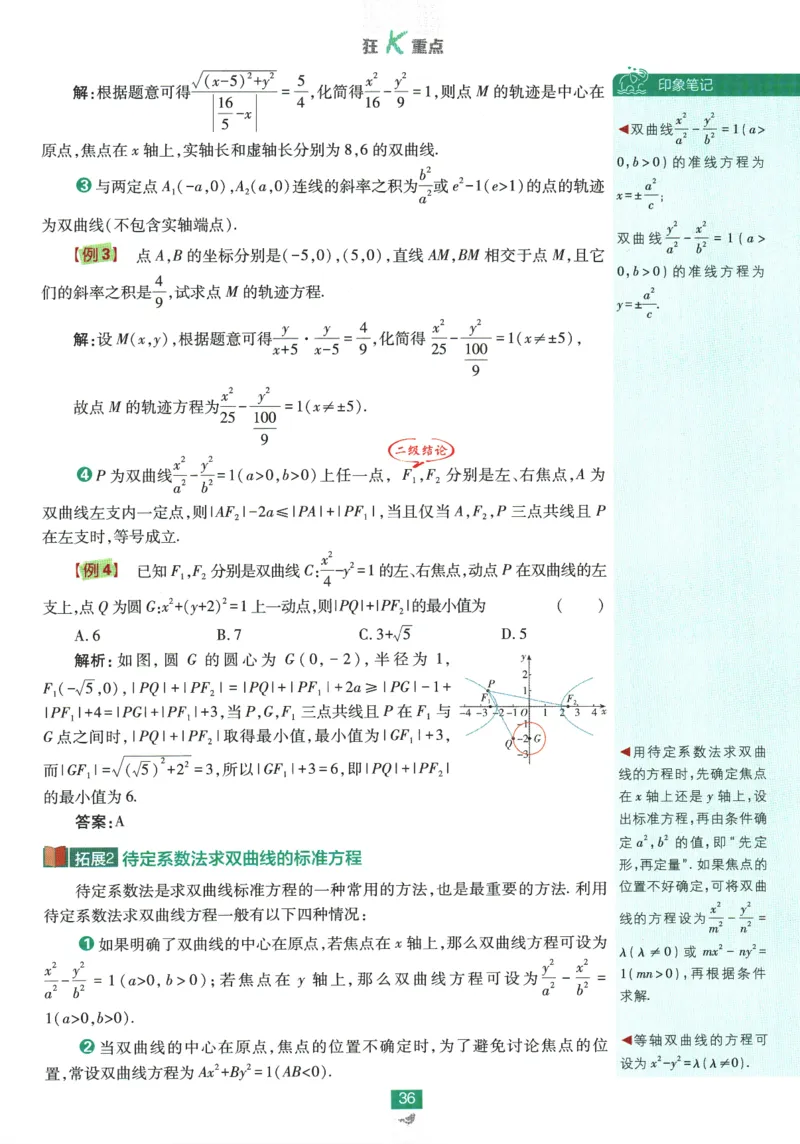 狂K重点
解:根据题意可得√((x-5)²+y²)/|16/5-x|=5/4,化简得x²/16-y²/9=1,则点 M 的轨迹是中心在
原点,焦点在 x 轴上,实轴长和虚轴长分别为8,6的双曲线.
❸与两定点 A₁(-a,0),A₂(a,0)连线的斜率之积为b²/a²或 e²-1(e>1)的点的轨迹
为双曲线(不包含实轴端点).
【例3】 点 A,B 的坐标分别是(-5,0),(5,0),直线 AM,BM 相交于点 M,且它
们的斜率之积是4/9,试求点 M 的轨迹方程.
解:设 M(x,y),根据题意可得y/(x+5)·y/(x-5)=4/9,化简得x²/25-y²/(100/9)=1(x≠±5),
故点 M 的轨迹方程为x²/25-y²/(100/9)=1(x≠±5).
二级结论
❹P 为双曲线x²/a²-y²/b²=1(a>0,b>0)上任一点, F₁,F₂ 分别是左、右焦点,A 为
双曲线左支内一定点,则|AF₂|-2a≤|PA|+|PF₁|,当且仅当 A,F₂,P 三点共线且 P
在左支时,等号成立.
【例4】 已知 F₁,F₂ 分别是双曲线 C:x²/4-y²=1的左、右焦点,动点 P 在双曲线的左
支上,点 Q 为圆 G:x²+(y+2)²=1上一动点,则|PQ|+|PF₂|的最小值为 ( )
A. 6 B. 7 C. 3+√5 D. 5
解析:如图,圆 G 的圆心为 G(0,-2),半径为 1,
F₁(-√5,0),|PQ|+|PF₂|=|PQ|+|PF₁|+2a≥|PG|-1+
|PF₁|+4=|PG|+|PF₁|+3,当 P,G,F₁ 三点共线且 P 在 F₁ 与
G 点之间时,|PQ|+|PF₂|取得最小值,最小值为|GF₁|+3,
而|GF₁|=√((√5)²+2²)=3,所以|GF₁|+3=6,即|PQ|+|PF₂|
的最小值为6.
答案:A
y
2
P
1
F₁
F₂
-4 -3 -2 -1 O 1 2 3 4 x
-1
Q -2 G
-3
拓展2 待定系数法求双曲线的标准方程
待定系数法是求双曲线标准方程的一种常用的方法,也是最重要的方法. 利用
待定系数法求双曲线方程一般有以下四种情况:
❶如果明确了双曲线的中心在原点,若焦点在 x 轴上,那么双曲线方程可设为
x²/a²-y²/b²=1(a>0,b>0);若焦点在 y 轴上,那么双曲线方程可设为y²/a²-x²/b²=
1(a>0,b>0).
❷当双曲线的中心在原点,焦点的位置不确定时,为了避免讨论焦点的位
置,常设双曲线方程为 Ax²+By²=1(AB<0).
印象笔记
◀双曲线x²/a²-y²/b²=1(a>
0,b>0)的准线方程为
x=±a²/c;
双曲线y²/a²-x²/b²=1(a>
0,b>0)的准线方程为
y=±a²/c.
◀用待定系数法求双曲
线的方程时,先确定焦点
在 x 轴上还是 y 轴上,设
出标准方程,再由条件确
定 a²,b² 的值,即“先定
形,再定量”. 如果焦点的
位置不好确定,可将双曲
线的方程设为x²/m²-y²/n²=
λ(λ≠0)或 mx²-ny²=
1(mn>0),再根据条件
求解.
◀等轴双曲线的方程可
设为 x²-y²=λ(λ≠0).
36